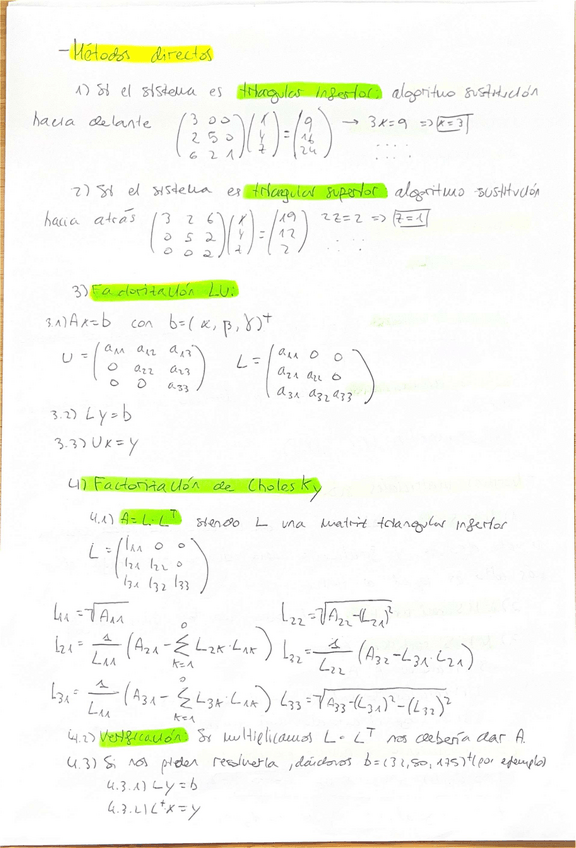 - Métodos directos
1) Si el sistema es triangular inferior: algoritmo sustitución
hacia delante (3 0 0; 2 5 0; 6 2 1)(x; y; z) = (9; 16; 24) → 3x=9 => x=3
2) Si el sistema es triangular superior algoritmo sustitución
hacia atrás (3 2 6; 0 5 2; 0 0 2)(x; y; z) = (19; 12; 2) 2z=2 => z=1
3) Factorización LU:
3.1) Ax=b con b=(α, β, γ)^t
U = (a11 a12 a13; 0 a22 a23; 0 0 a33) L = (a11 0 0; a21 a22 0; a31 a32 a33)
3.2) Ly=b
3.3) Ux=y
4) Factorización de Cholesky
4.1) A=L·L^T siendo L una matriz triangular inferior
L = (l11 0 0; l21 l22 0; l31 l32 l33)
L11 = √A11 L22 = √A22-(L21)^2
L21 = 1/L11 (A21 - ∑_{k=1}^{0} L2k·L1k) L32 = 1/L22 (A32-L31·L21)
L31 = 1/L11 (A31 - ∑_{k=1}^{0} L3k·L1k) L33 = √A33-(L31)^2-(L32)^2
4.2) Verificación: Si multiplicamos L·L^T nos debería dar A.
4.3) Si nos piden resolverla, dándonos b=(32,50,175)^t (por ejemplo)
4.3.1) Ly=b
4.3.2) L^t x=y